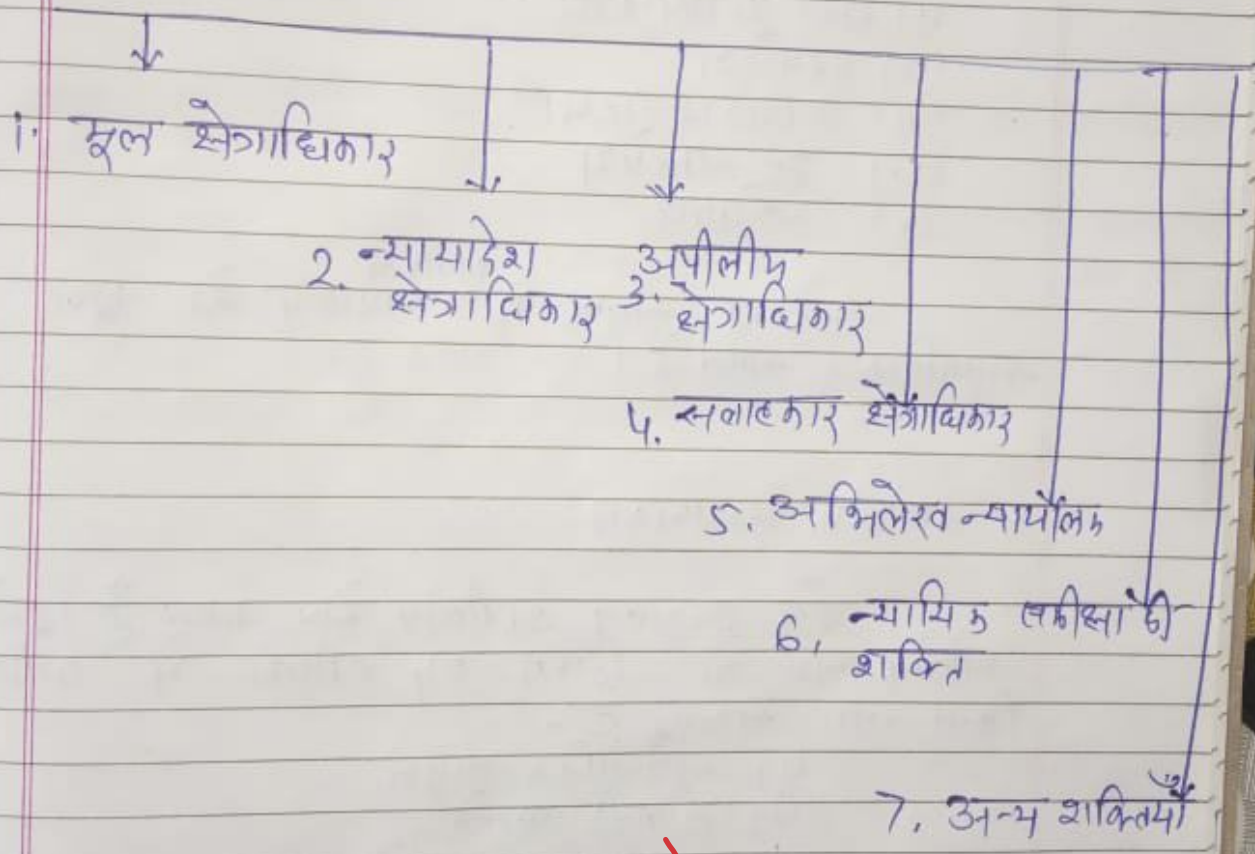 1. मूल क्षेत्राधिकार
2. न्यायादेश
क्षेत्राधिकार
3. अपीलीय
क्षेत्राधिकार
4. सलाहकार क्षेत्राधिकार
5. अभिलेख न्यायालय
6. न्यायिक समीक्षा की
शक्ति
7. अन्य शक्तियाँ